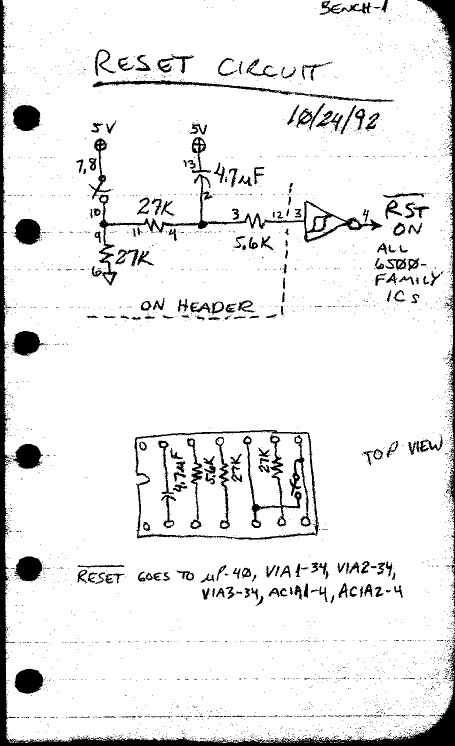 BENCH-1
RESET CIRCUIT
10/24/92
5V 5V
7,8 13 4.7µF
10 27K 2
9 11 4 3 12 3 4 RST
27K 5.6K ON
6 ALL
6500-
FAMILY
ICs
ON HEADER
4.7µF 5.6K 27K 27K
TOP VIEW
RESET GOES TO µP-40, VIA1-34, VIA2-34,
VIA3-34, ACIA1-4, ACIA2-4